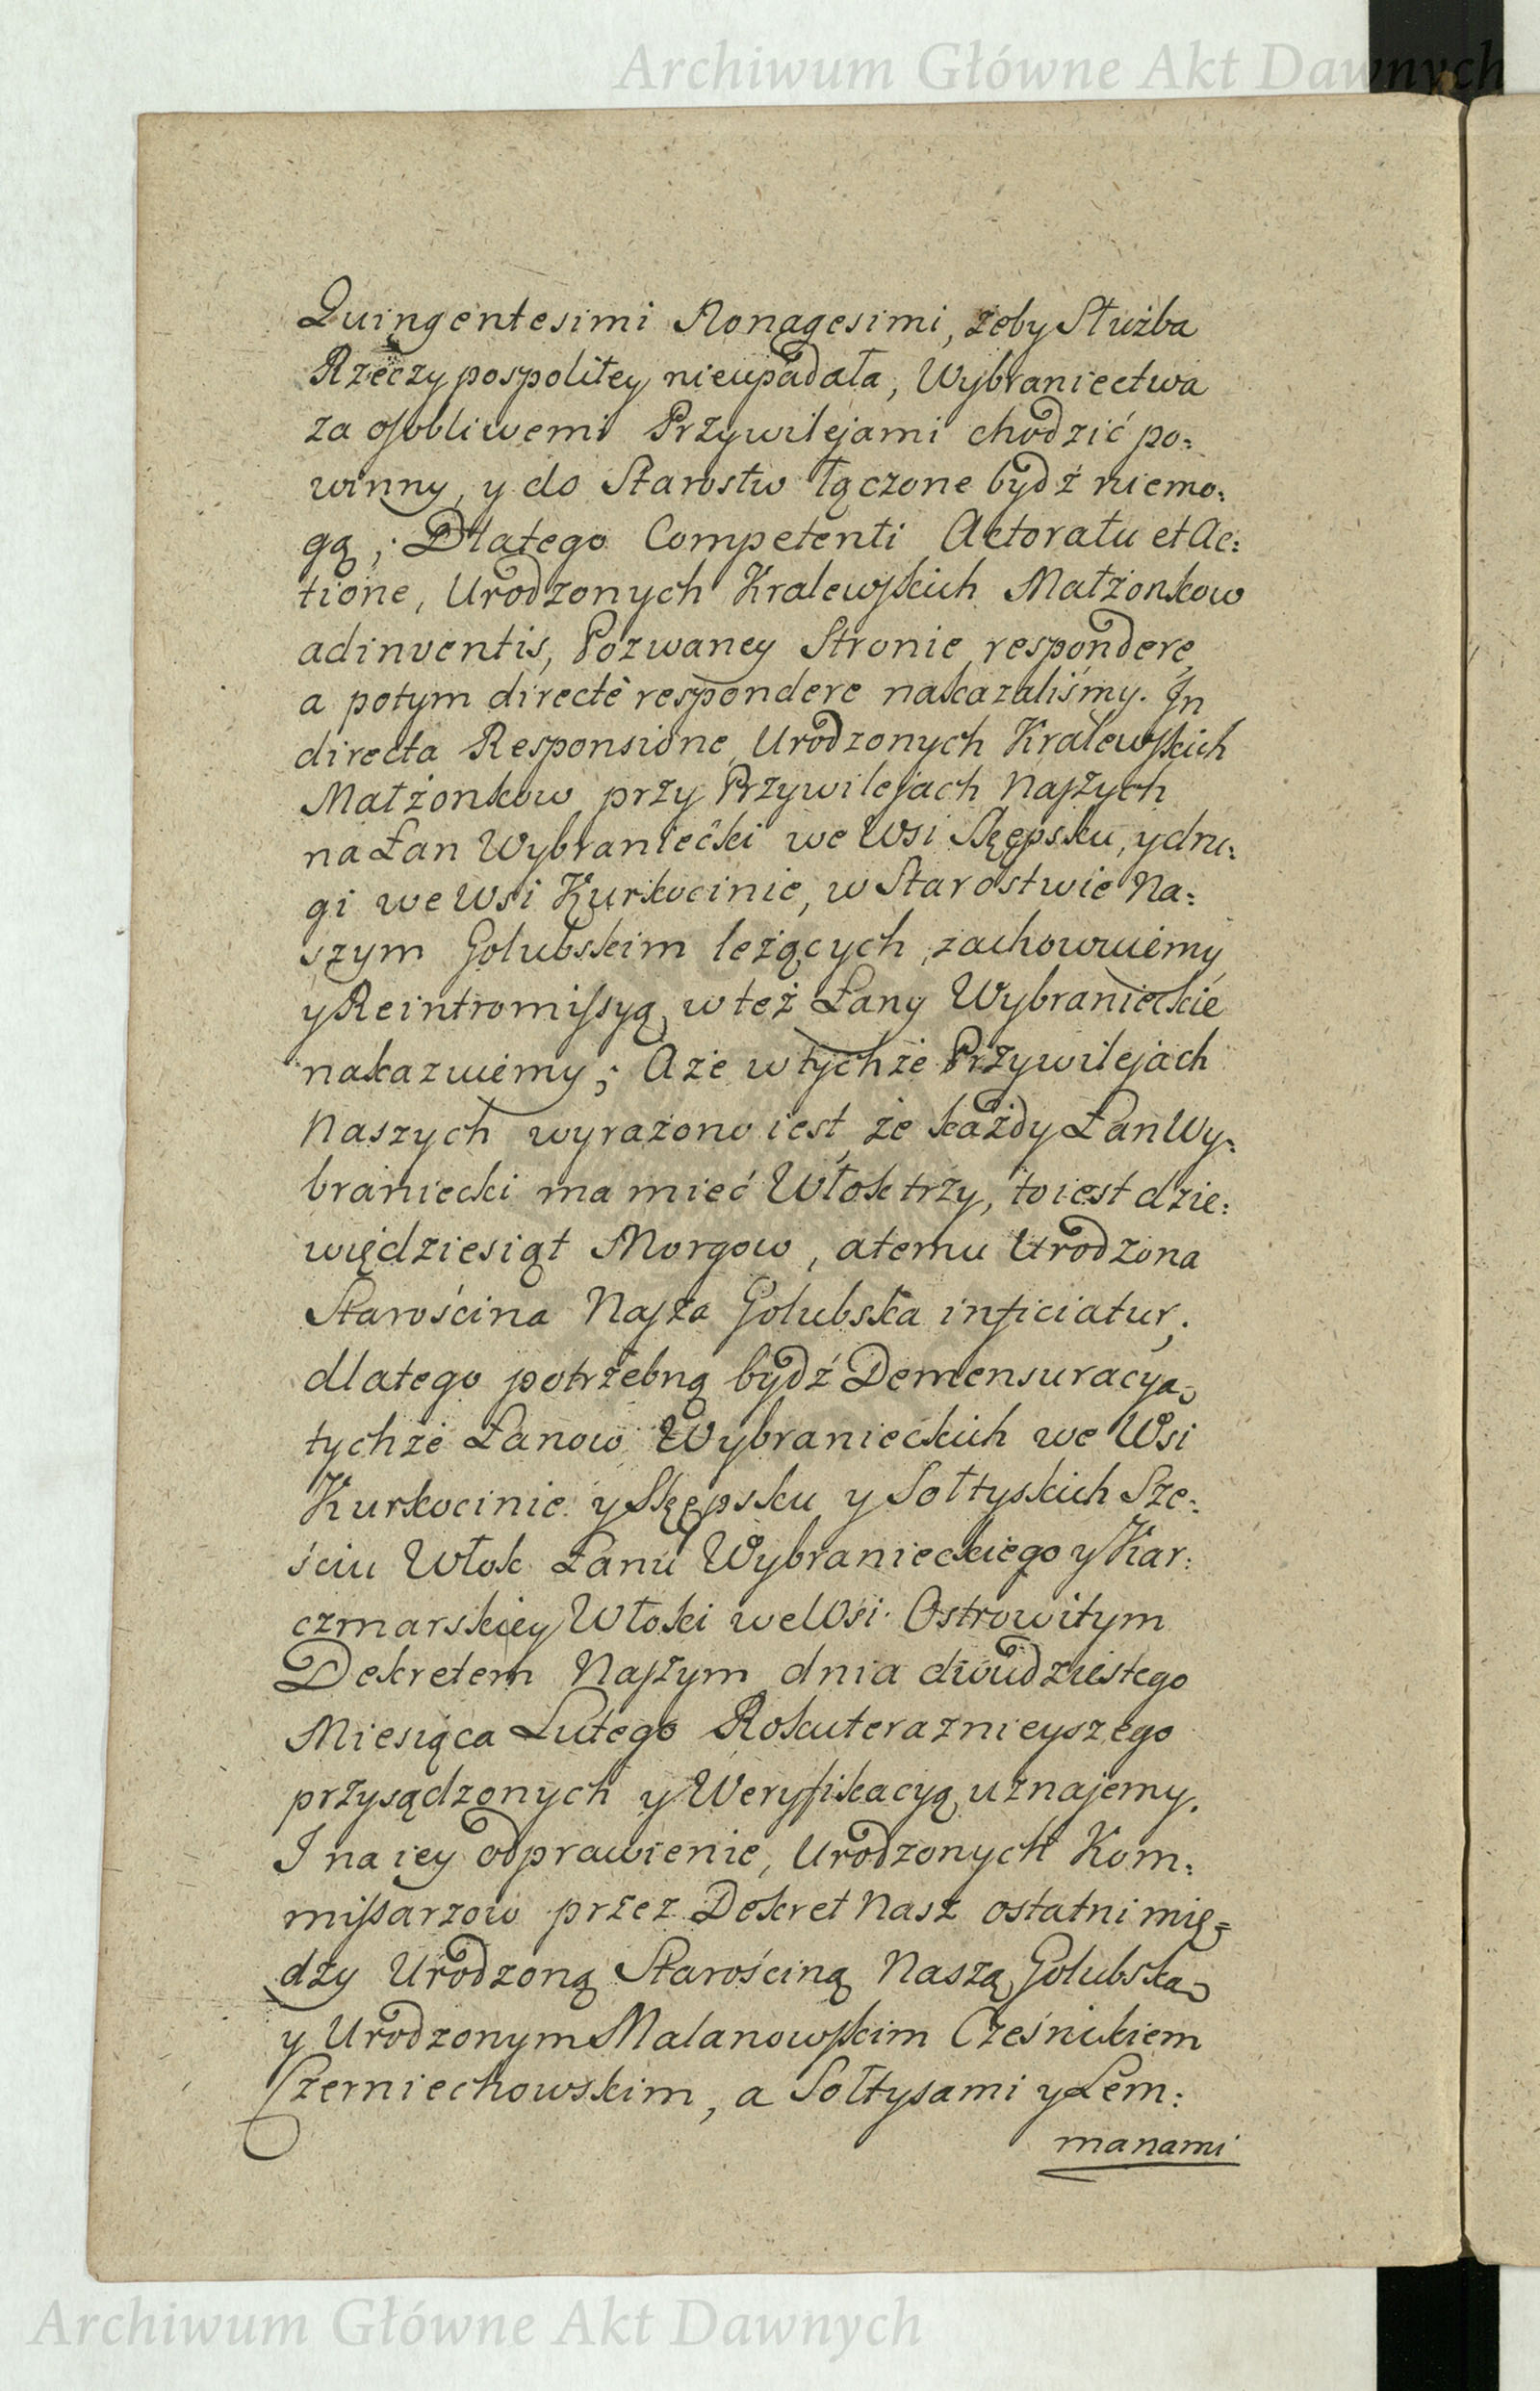 Archiwum Główne Akt Dawnych
Quingentesimi Nonagesimi, żeby Służba
Rzeczypospolitey nieupadała, Wybraniectwa
za osobliwemi Przywilejami chodzić po:
winny, y do Starostw łączone bydź niemo:
gą; Dlatego Competenti Actoratu et Ac:
tione, Urodzonych Kralewskich Małżonkow
adinventis, Pozwaney Stronie respondere,
a potym directè respondere nakazaliśmy. In
directa Responsione Urodzonych Kralewskich
Małżonkow przy Przywilejach Naszych
na Łan Wybraniecki we Wsi Skępsku, y dru:
gi we Wsi Kurkocinie, w Starostwie Na:
szym Golubskim leżących, zachowuiemy
y Reintromissyą w też Łany Wybranieckie
nakazuiemy; A że w tychże Przywilejach
Naszych wyrażono iest, że każdy Łan Wy:
braniecki ma mieć Włok trzy, to iest dzie:
więdziesiąt Morgow, a temu Urodzona
Starościna Nasza Golubska inficiatur;
dlatego potrzebną bydź Demensuracyą
tychże Łanow Wybranieckich we Wsi
Kurkocinie y Skępsku y Sołtyskich Sze:
ściu Włok Łanu Wybranieckiego y Kar:
czmarskiey Włoki we Wsi Ostrowitym
Dekretem Naszym dnia dwudziestego
Miesiąca Lutego Roku teraznieyszego
przysądzonych y Weryfikacyą uznajemy.
I na iey odprawienie, Urodzonych Kom:
missarzow przez Dekret Nasz ostatni mię=
dzy Urodzoną Starościną Naszą Golubską
y Urodzonym Malanowskim Cześnikiem
Czerniechowskim, a Sołtysami y Lem:
manami
Archiwum Główne Akt Dawnych